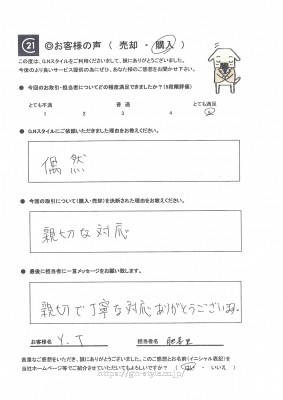 21 ◎お客様の声 ( 売却 ・ 購入 )
この度は、G.Hスタイルをご利用くださいまして、誠にありがとうございました。
今後のより良いサービス提供の為にぜひ、あなた様のご感想をお聞かせ下さい。
● 今回のお取引・担当者についてどの程度満足できましたか?(5段階評価)
とても不満 普通 とても満足
1 2 3 4 5
● G.Hスタイルにご依頼いただきました理由をお教えください。
偶然
● 今回の取引について(購入・売却)を決断された理由をお教えください。
親切な対応
● 最後に担当者に一言メッセージをお願い致します。
親切で丁寧な対応ありがとうございます。
お客様名 Y.T 担当者名
貴重なご感想をいただき、誠にありがとうございました。このご感想とお名前(イニシャル表記)を
当社ホームページ等でご紹介させていただいてもよろしいですか? ( はい ・ いいえ )